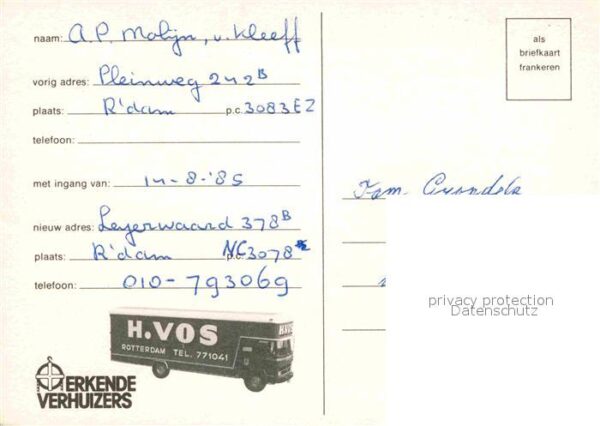 naam: A.P. Molijn, v. Kleeff
vorig adres: Pleinweg 242B
plaats: R'dam p.c. 3083EZ
telefoon:
met ingang van: 14-8-'85
nieuw adres: Leyerwaard 378B
plaats: R'dam NC3078
telefoon: 010-793069
H.VOS
ROTTERDAM TEL. 771041
H.VOS
ERKENDE
VERHUIZERS
als
briefkaart
frankeren
Fam.
privacy protection
Datenschutz